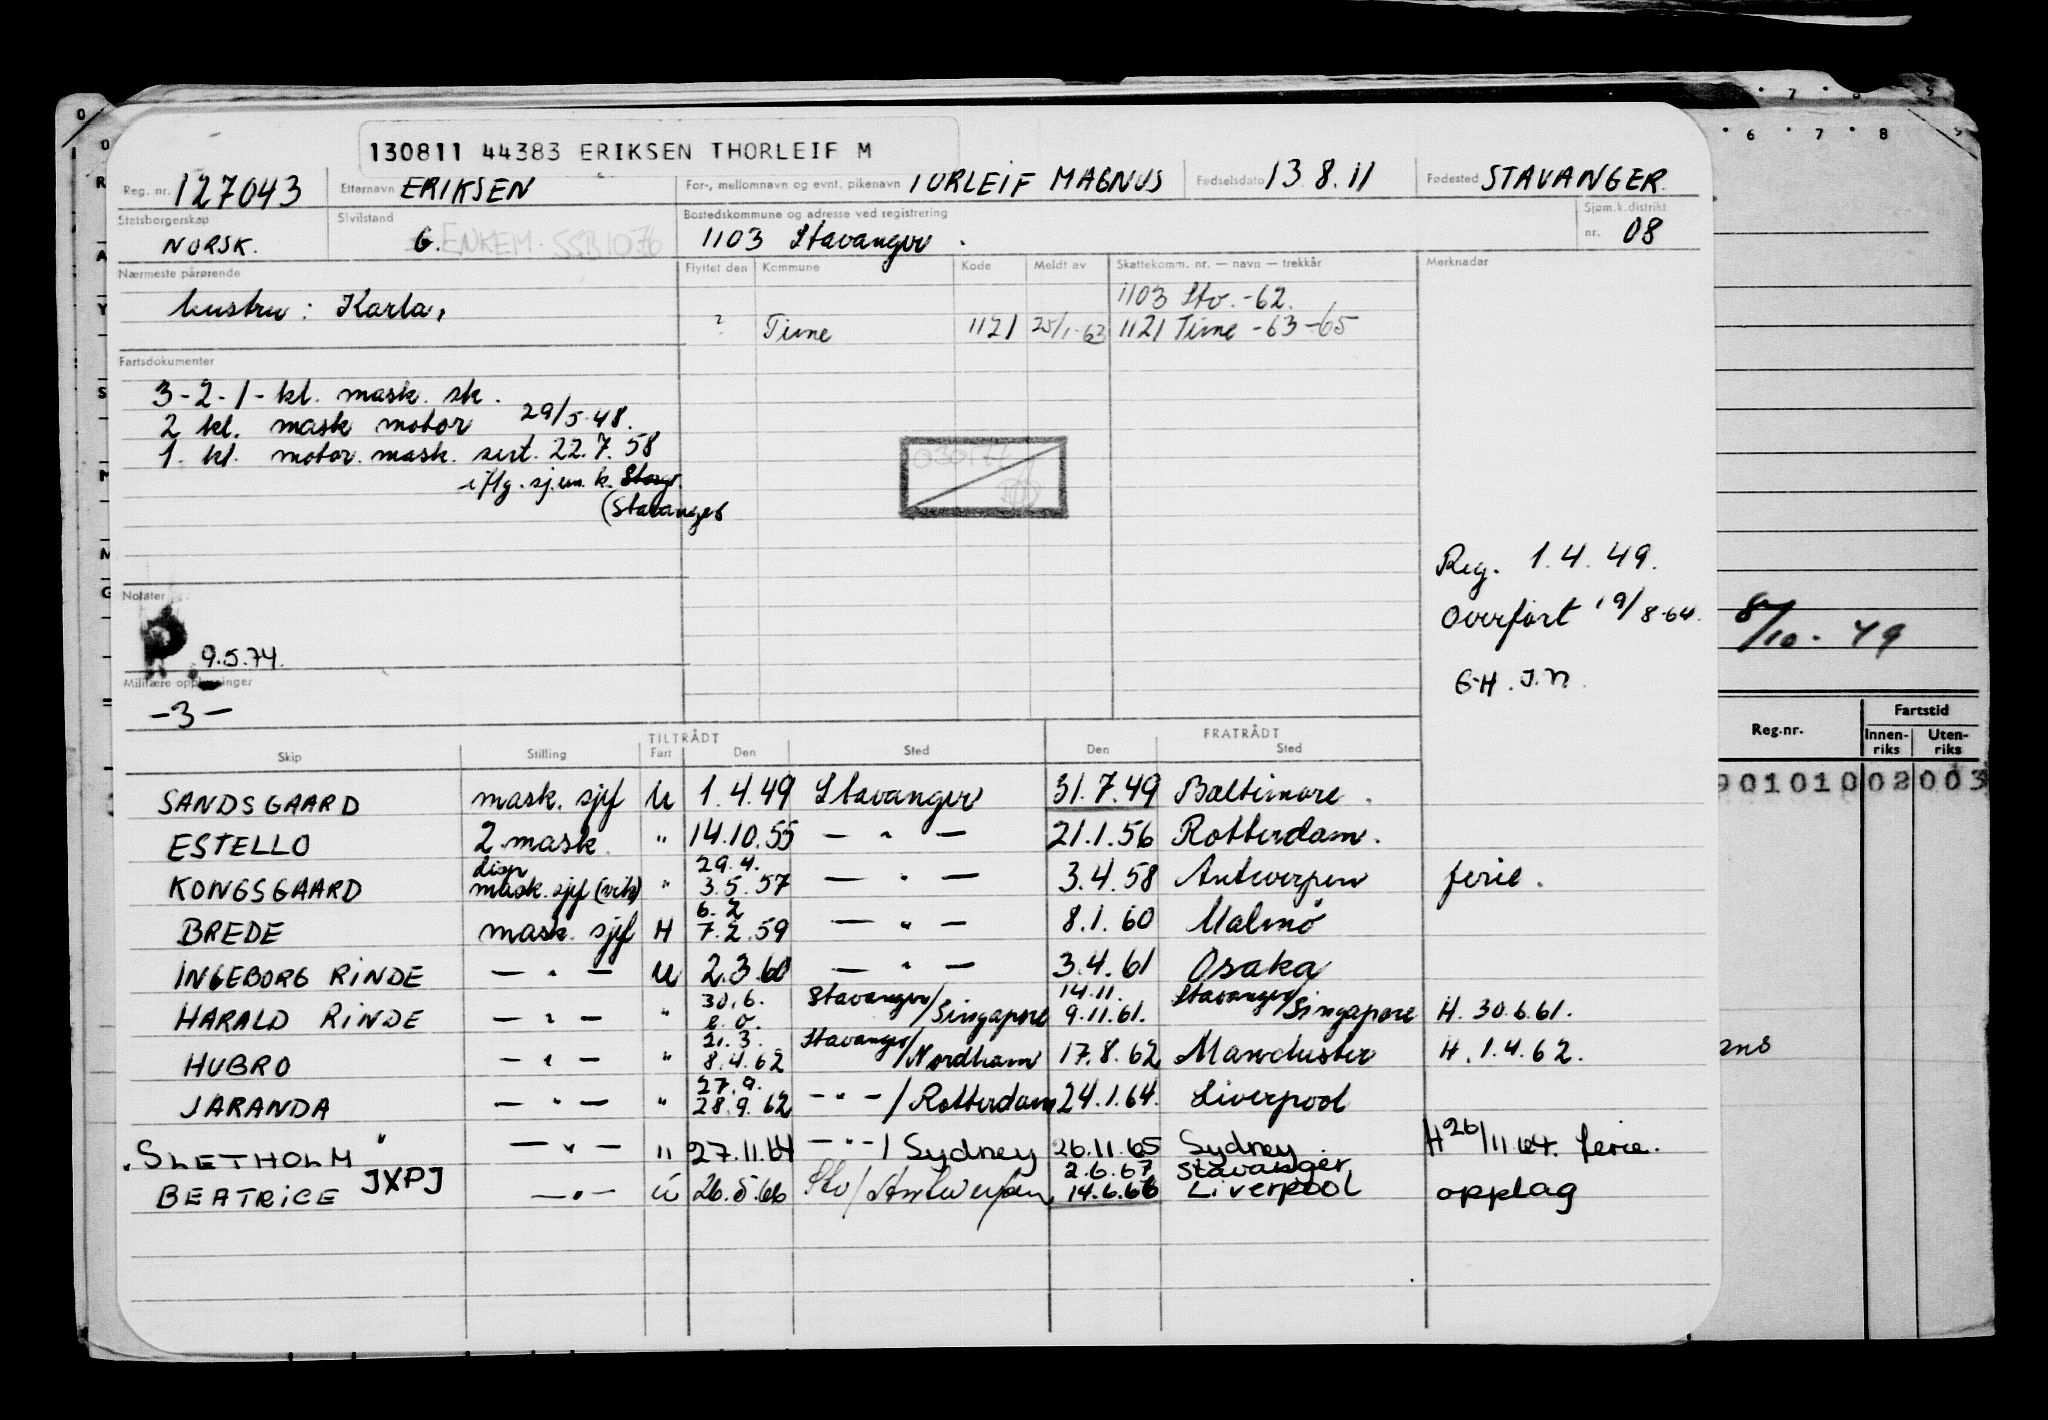 130811 44383 ERIKSEN THORLEIF M
Reg. nr. 127043 Etternavn ERIKSEN For-, mellomnavn og evnt. pikenavn TORLEIF MAGNUS Fødselsdato 13.8.11 Fødested STAVANGER.
Statsborgerskap NORSK. Sivilstand G. ENKEM. SSB1076 Bostedskommune og adresse ved registrering 1103 Stavanger. Sjøm.k.distrikt nr. 08
Nærmeste pårørende Flyttet den Kommune Kode Meldt av Skattekomm. nr. — navn — trekkår Merknader
hustru: Karla,
1103 Stv. -62.
? Time 1121 25/1-63 1121 Time -63-65
Fartsdokumenter
3-2-1-kl. mask. sk.
2 kl. mask motor 29/5.48.
1. kl. motor. mask. sert. 22.7.58
iflg. sj.m.k.
(Stavanger
Reg. 1.4.49.
Overført 19/8-64.
G.H. J.N.
Notater
9.5.74.
Militære opplysninger
-3-
TILTRÅDT FRATRÅDT
Skip Stilling Fart Den Sted Den Sted
SANDSGAARD mask. sjef U 1.4.49 Stavanger 31.7.49 Baltimore.
ESTELLO 2 mask. " 14.10.55 — " — 21.1.56 Rotterdam.
disp 29.4.
KONGSGAARD mask. sjef (vik) " 3.5.57 — " — 3.4.58 Antwerpen ferie.
6.2
BREDE mask. sjef H 7.2.59 — " — 8.1.60 Malmö
INGEBORG RINDE — " — U 2.3.60 — " — 3.4.61 Osaka
30.6. Stavanger/ 14.11. Stavanger/
HARALD RINDE — " — " e.o. Singapore 9.11.61. Singapore H. 30.6.61.
21.3. Stavanger/
HUBRO — " — " 8.4.62 Nordham 17.8.62 Manchester H. 1.4.62.
27.9.
JARANDA — " — " 28.9.62 — " — / Rotterdam 24.1.64. Liverpool
SLETHOLM " — " — " 27.11.64 — " — / Sydney 26.11.65 Sydney H 26/11.64. ferie.
2.6.67 Stavanger
BEATRICE JXPJ — " — U 26.5.66 Stv/Antwerpen 14.6.66 Liverpool opplag
6 7 8
8/10. 49
Reg.nr. Fartstid
Innenriks Utenriks
901010 02 003